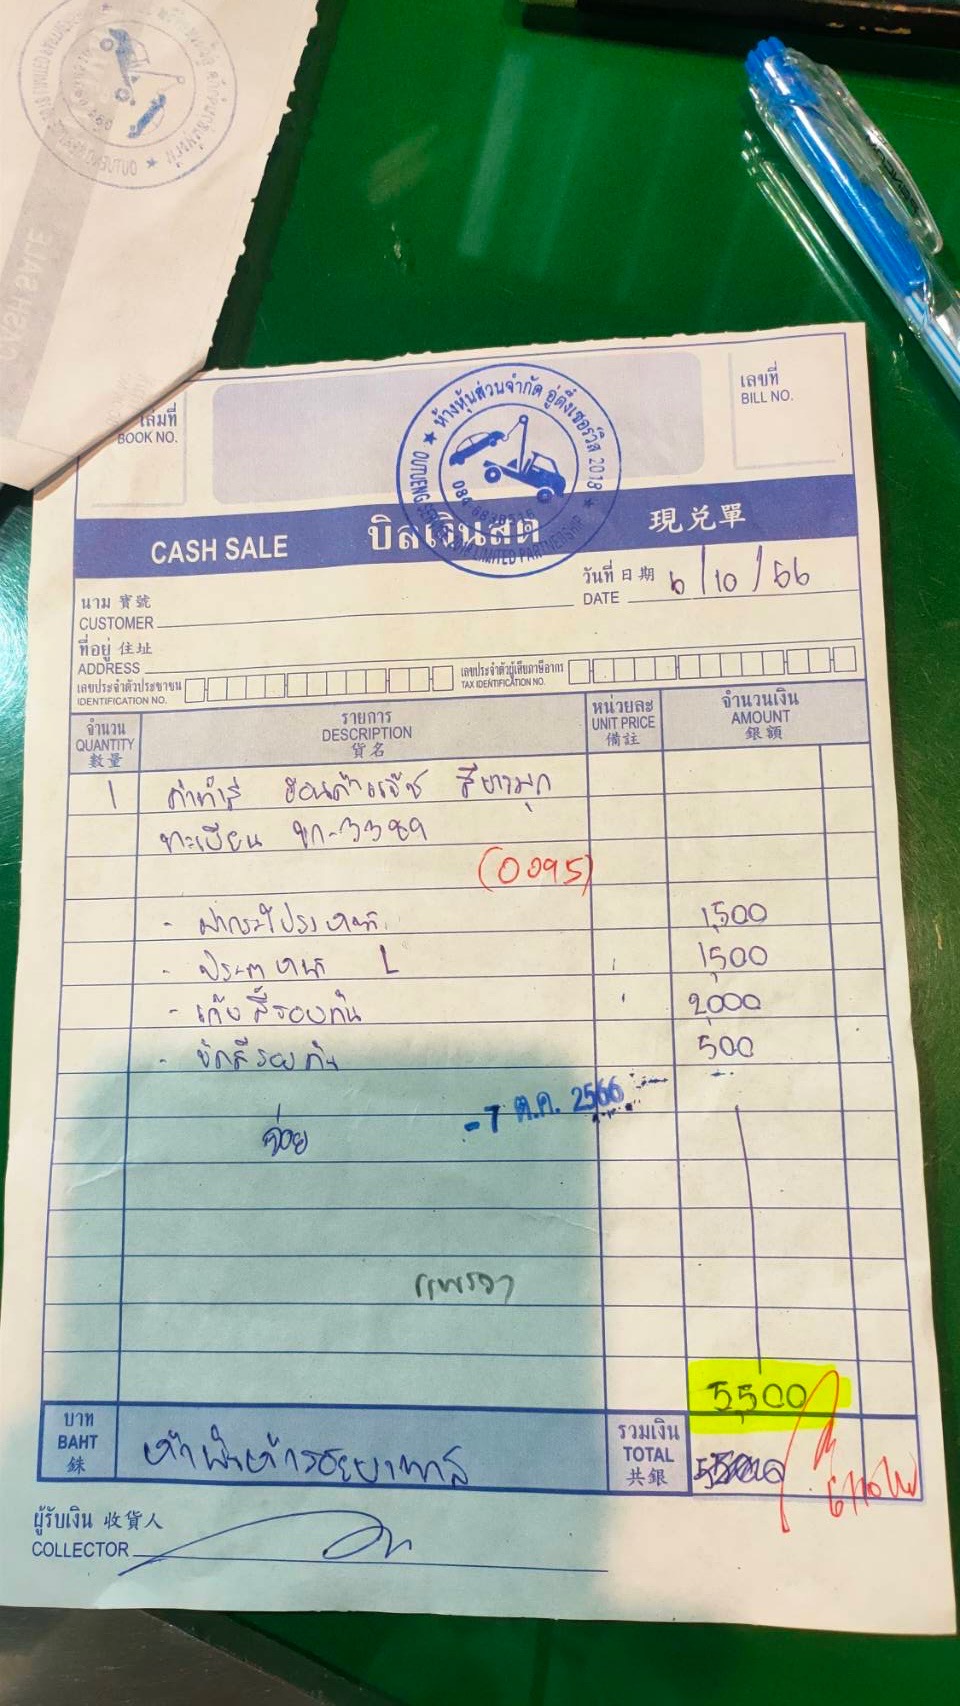 เล่มที่
BOOK NO.
ห้างหุ้นส่วนจำกัด อู่ตึ๋งเซอร์วิส 2018
เลขที่
BILL NO.
CASH SALE
บิลเงินสด
現兌單
LIMITED PARTNERSHIP
วันที่ 日期
DATE
6/10/66
นาม 寶號
CUSTOMER
ที่อยู่ 住址
ADDRESS
เลขประจำตัวประชาชน
IDENTIFICATION NO.
เลขประจำตัวผู้เสียภาษีอากร
TAX IDENTIFICATION NO.
จำนวน
QUANTITY
數量
รายการ
DESCRIPTION
貨名
หน่วยละ
UNIT PRICE
備註
จำนวนเงิน
AMOUNT
銀額
1 ค่าทำสี ฮอนด้าแจ๊ซ สีขาวมุก
ทะเบียน ขก-3389
(0095)
- ฝากระโปรงหน้า 1,500
- ประตูหน้า L 1,500
- เก๋งสีรองกัน 2,000
- ขัดสีรอบคัน 500
-7 ต.ค. 2566
จ่อย
แพรวา
5,500
บาท
BAHT
銖
ห้าพันห้าร้อยบาทถ้วน
รวมเงิน
TOTAL
共銀
ผู้รับเงิน 收貨人
COLLECTOR
CASH SALE